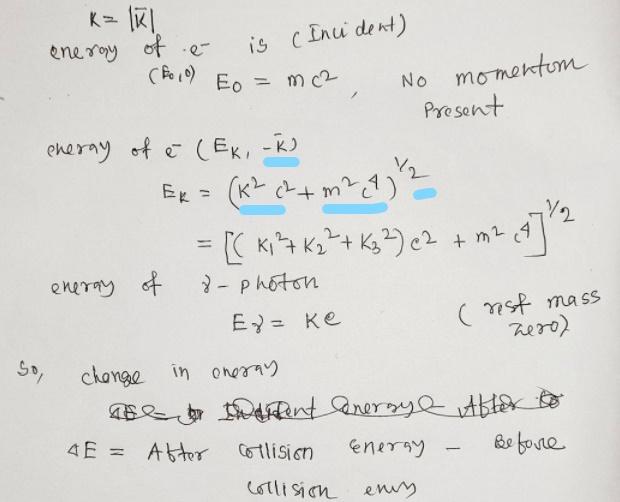 K = |K̄|
energy of e- is (Incident)
(E₀,0) E₀ = mc2, No momentom
Present
energy of ē (Eₖ, -K̄)
Eₖ = (K² c² + m² c⁴)^1/2
= [(K₁² + K₂² + K₃²) c2 + m² c⁴]^1/2
energy of γ - photon
Eγ = Kc (rest mass
zero)
So, change in energy
ΔE = After collision energy - Before
collision enry